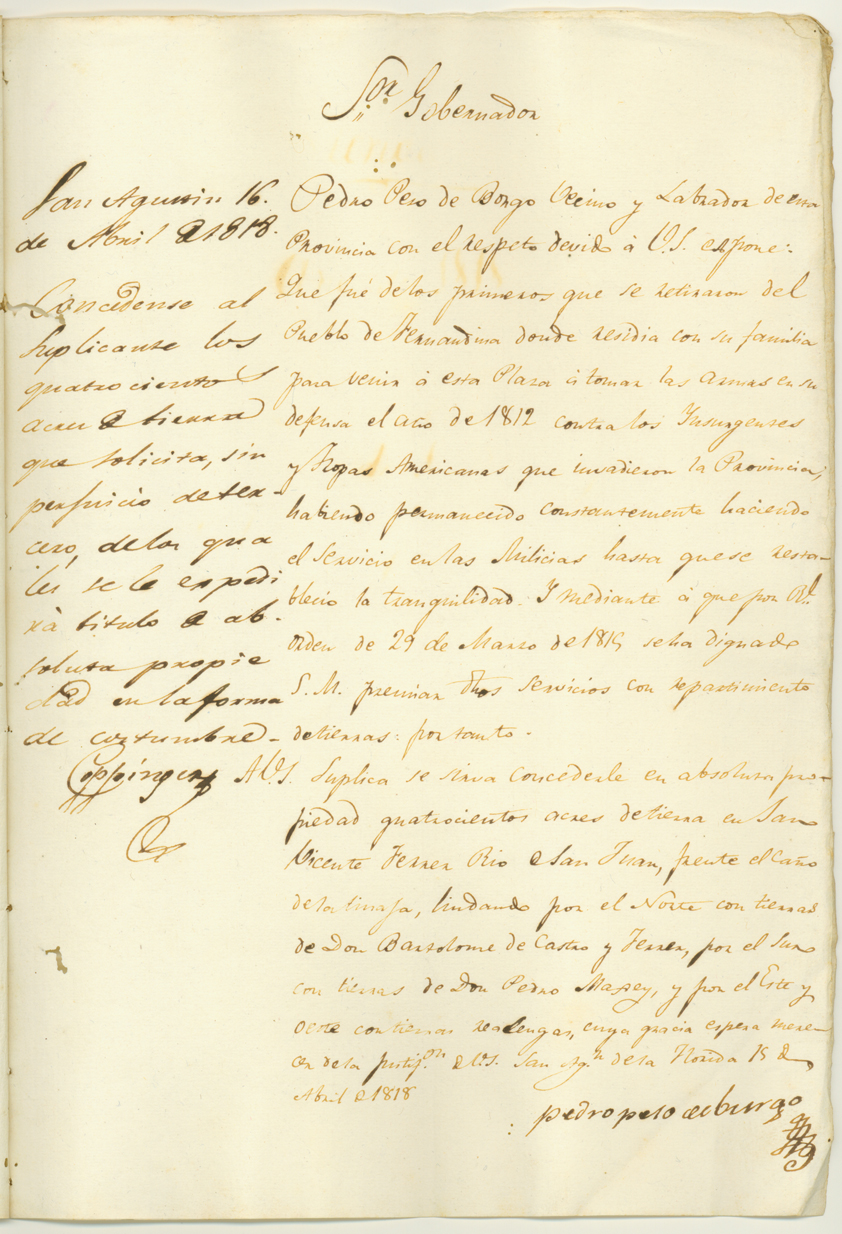 Sor. Gobernador
San Agustin 16.
de Abril de 1818.
Concedense al
suplicante los
quatrocientos
acres de tierra
que solicita, sin
perjuicio de ter-
cero, de los qua
les se le expedi
rá titulo de ab-
soluta propie
dad en la forma
de costumbre-
Coppinger
Pedro Peso de Borgo Vecino y Labrador de esta
Provincia con el respeto devido á V.S. expone:
Que fué de los primeros que se retiraron del
Pueblo de Fernandina donde residia con su familia
para venir á esta Plaza á tomar las armas en su
defensa el año de 1812 contra los Insurgentes
y Tropas Americanas que invadieron la Provincia;
habiendo permanecido constantemente haciendo
el servicio en las Milicias hasta que se resta-
blecio la tranquilidad. Y mediante á que por Rl.
orden de 29 de Marzo de 1815 se ha dignado
S. M. premiar dhos servicios con repartimiento
de tierras: por tanto-
A V.S. Suplica se sirva concederle en absoluta pro-
piedad quatrocientos acres de tierra en San
Vicente Ferrer Rio de San Juan, frente el Caño
de la lindando por el Norte con tierras
de Don Bartolome de Castro y Ferrer, por el Sur
con tierras de Don Pedro y por el Este y
Oeste con tierras realengas, cuya gracia espera mere-
cer de la justifon. de V.S. San Agn. de la Florida 15 de
Abril de 1818
pedro peso de burgo